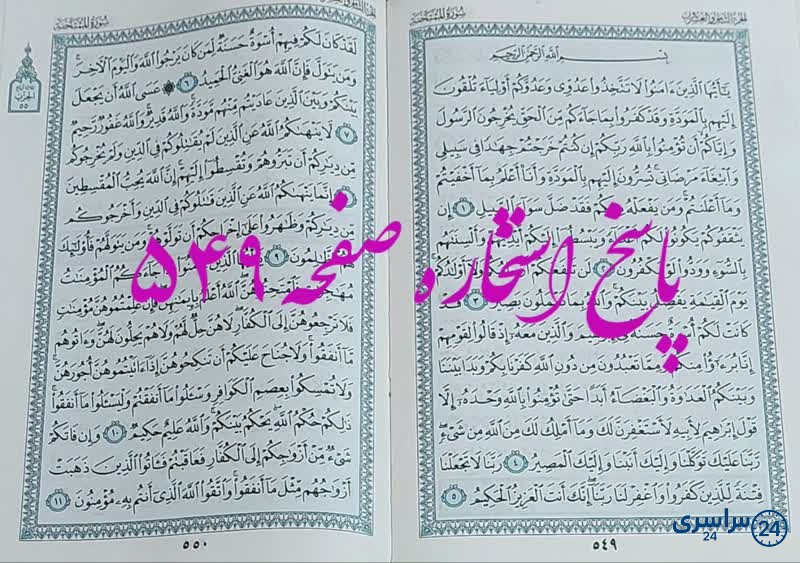 الجزء الثامن والعشرون
سورة الممتحنة
بسم الله الرحمن الرحيم
يَٰٓأَيُّهَا ٱلَّذِينَ ءَامَنُوا۟ لَا تَتَّخِذُوا۟ عَدُوِّى وَعَدُوَّكُمْ أَوْلِيَآءَ تُلْقُونَ
إِلَيْهِم بِٱلْمَوَدَّةِ وَقَدْ كَفَرُوا۟ بِمَا جَآءَكُم مِّنَ ٱلْحَقِّ يُخْرِجُونَ ٱلرَّسُولَ
وَإِيَّاكُمْ أَن تُؤْمِنُوا۟ بِٱللَّهِ رَبِّكُمْ إِن كُنتُمْ خَرَجْتُمْ جِهَٰدًا فِى سَبِيلِى
وَٱبْتِغَآءَ مَرْضَاتِى تُسِرُّونَ إِلَيْهِم بِٱلْمَوَدَّةِ وَأَنَا۠ أَعْلَمُ بِمَآ أَخْفَيْتُمْ
وَمَآ أَعْلَنتُمْ وَمَن يَفْعَلْهُ مِنكُمْ فَقَدْ ضَلَّ سَوَآءَ ٱلسَّبِيلِ ١ إِن
يَثْقَفُوكُمْ يَكُونُوا۟ لَكُمْ وَيَبْسُطُوٓا۟ أَيْدِيَهُمْ وَأَلْسِنَتَهُم
بِٱلسُّوٓءِ وَوَدُّوا۟ لَوْ تَكْفُرُونَ ٢ لَن تَنفَعَكُمْ وَلَآ أَوْلَٰدُكُمْ
يَوْمَ ٱلْقِيَٰمَةِ يَفْصِلُ بَيْنَكُمْ وَٱللَّهُ بِمَا تَعْمَلُونَ بَصِيرٌ ٣ قَدْ
كَانَتْ لَكُمْ أُسْوَةٌ حَسَنَةٌ فِىٓ إِبْرَٰهِيمَ وَٱلَّذِينَ مَعَهُۥٓ إِذْ قَالُوا۟ لِقَوْمِهِمْ
إِنَّا بُرَءَٰٓؤُا۟ مِنكُمْ وَمِمَّا تَعْبُدُونَ مِن دُونِ ٱللَّهِ كَفَرْنَا بِكُمْ وَبَدَا بَيْنَنَا
وَبَيْنَكُمُ ٱلْعَدَٰوَةُ وَٱلْبَغْضَآءُ أَبَدًا حَتَّىٰ تُؤْمِنُوا۟ بِٱللَّهِ وَحْدَهُۥٓ إِلَّا
قَوْلَ إِبْرَٰهِيمَ لِأَبِيهِ لَأَسْتَغْفِرَنَّ لَكَ وَمَآ أَمْلِكُ لَكَ مِنَ ٱللَّهِ مِن شَىْءٍ
رَّبَّنَا عَلَيْكَ تَوَكَّلْنَا وَإِلَيْكَ أَنَبْنَا وَإِلَيْكَ ٱلْمَصِيرُ ٤ رَبَّنَا لَا تَجْعَلْنَا
فِتْنَةً لِّلَّذِينَ كَفَرُوا۟ وَٱغْفِرْ لَنَا رَبَّنَآ إِنَّكَ أَنتَ ٱلْعَزِيزُ ٱلْحَكِيمُ ٥
٥٤٩
الجزء الثامن والعشرون
سورة الممتحنة
لَقَدْ كَانَ لَكُمْ فِيهِمْ أُسْوَةٌ حَسَنَةٌ لِّمَن كَانَ يَرْجُوا۟ ٱللَّهَ وَٱلْيَوْمَ ٱلْءَاخِرَ
وَمَن يَتَوَلَّ فَإِنَّ ٱللَّهَ هُوَ ٱلْغَنِىُّ ٱلْحَمِيدُ ٦ عَسَى ٱللَّهُ أَن يَجْعَلَ
بَيْنَكُمْ وَبَيْنَ ٱلَّذِينَ عَادَيْتُم مِّنْهُم مَّوَدَّةً وَٱللَّهُ قَدِيرٌ وَٱللَّهُ غَفُورٌ رَّحِيمٌ
٧ لَّا يَنْهَىٰكُمُ ٱللَّهُ عَنِ ٱلَّذِينَ لَمْ يُقَٰتِلُوكُمْ فِى ٱلدِّينِ وَلَمْ يُخْرِجُوكُم
مِّن دِيَٰرِكُمْ أَن تَبَرُّوهُمْ وَتُقْسِطُوٓا۟ إِلَيْهِمْ إِنَّ ٱللَّهَ يُحِبُّ ٱلْمُقْسِطِينَ
٨ إِنَّمَا يَنْهَىٰكُمُ ٱللَّهُ عَنِ ٱلَّذِينَ قَٰتَلُوكُمْ فِى ٱلدِّينِ وَأَخْرَجُوكُم
مِّن دِيَٰرِكُمْ وَظَٰهَرُوا۟ عَلَىٰٓ إِخْرَاجِكُمْ أَن تَوَلَّوْهُمْ وَمَن يَتَوَلَّهُمْ فَأُو۟لَٰٓئِكَ
هُمُ ٱلظَّٰلِمُونَ ٩ جَآءَكُمُ ٱلْمُؤْمِنَٰتُ
ٱللَّهُ أَعْلَمُ بِإِيمَٰنِهِنَّ فَإِنْ عَلِمْتُمُوهُنَّ مُؤْمِنَٰتٍ
فَلَا تَرْجِعُوهُنَّ إِلَى ٱلْكُفَّارِ لَا هُنَّ حِلٌّ لَّهُمْ وَلَا هُمْ يَحِلُّونَ لَهُنَّ وَءَاتُوهُم
مَّآ أَنفَقُوا۟ وَلَا جُنَاحَ عَلَيْكُمْ أَن تَنكِحُوهُنَّ إِذَآ ءَاتَيْتُمُوهُنَّ أُجُورَهُنَّ
وَلَا تُمْسِكُوا۟ بِعِصَمِ ٱلْكَوَافِرِ وَسْـَٔلُوا۟ مَآ أَنفَقْتُمْ وَلْيَسْـَٔلُوا۟ مَآ أَنفَقُوا۟
ذَٰلِكُمْ حُكْمُ ٱللَّهِ يَحْكُمُ بَيْنَكُمْ وَٱللَّهُ عَلِيمٌ حَكِيمٌ ١٠ وَإِن فَاتَكُمْ
شَىْءٌ مِّنْ أَزْوَٰجِكُمْ إِلَى ٱلْكُفَّارِ فَعَاقَبْتُمْ فَـَٔاتُوا۟ ٱلَّذِينَ ذَهَبَتْ
أَزْوَٰجُهُم مِّثْلَ مَآ أَنفَقُوا۟ وَٱتَّقُوا۟ ٱللَّهَ ٱلَّذِىٓ أَنتُم بِهِۦ مُؤْمِنُونَ ١١
٥٥٠
پاسخ استخاره صفحه ۵۴۹
سراسری
24
24